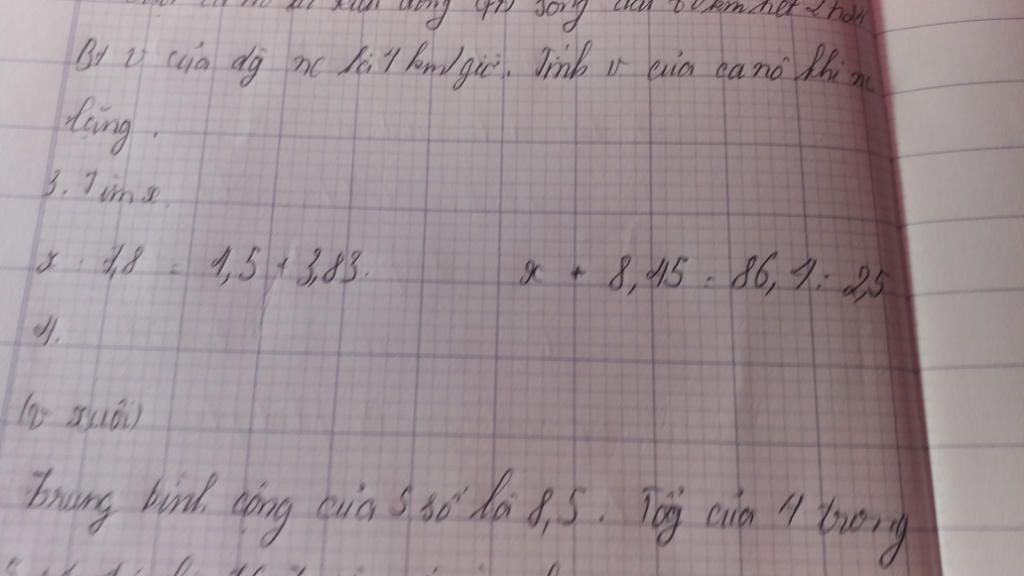 sông dài
Bt v của dg nc là 4 km/giờ. Tính v của ca nô khi nc
lặng.
3. Tìm x
x : 1,8 = 1,5 + 3,83.
x + 8,15 = 86,1 : 2,5
4.
(v xuôi)
Trung bình cộng của 5 số là 8,5. Tổg của 4 trong